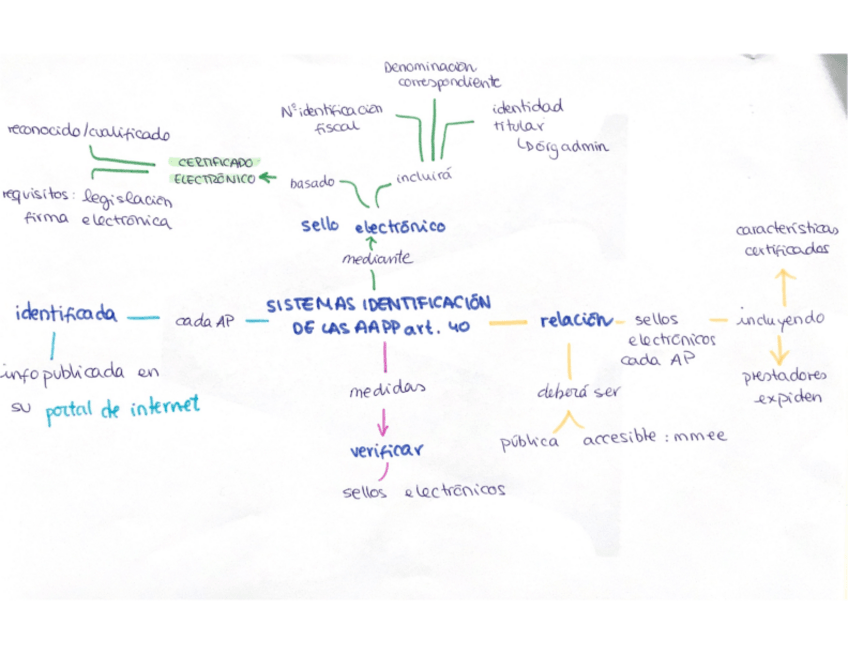 Denominación
correspondiente
Nº identificación
fiscal
identidad
titular
órg admin
reconocido/cualificado
CERTIFICADO
ELECTRÓNICO
requisitos: legislación
firma electrónica
basado
incluirá
sello electrónico
mediante
SISTEMAS IDENTIFICACIÓN
DE LAS AAPP art. 40
identificada
cada AP
info publicada en
su portal de internet
medidas
verificar
sellos electrónicos
relación
sellos
electrónicos
cada AP
incluyendo
características
certificados
prestadores
expiden
deberá ser
pública
accesible: mmee